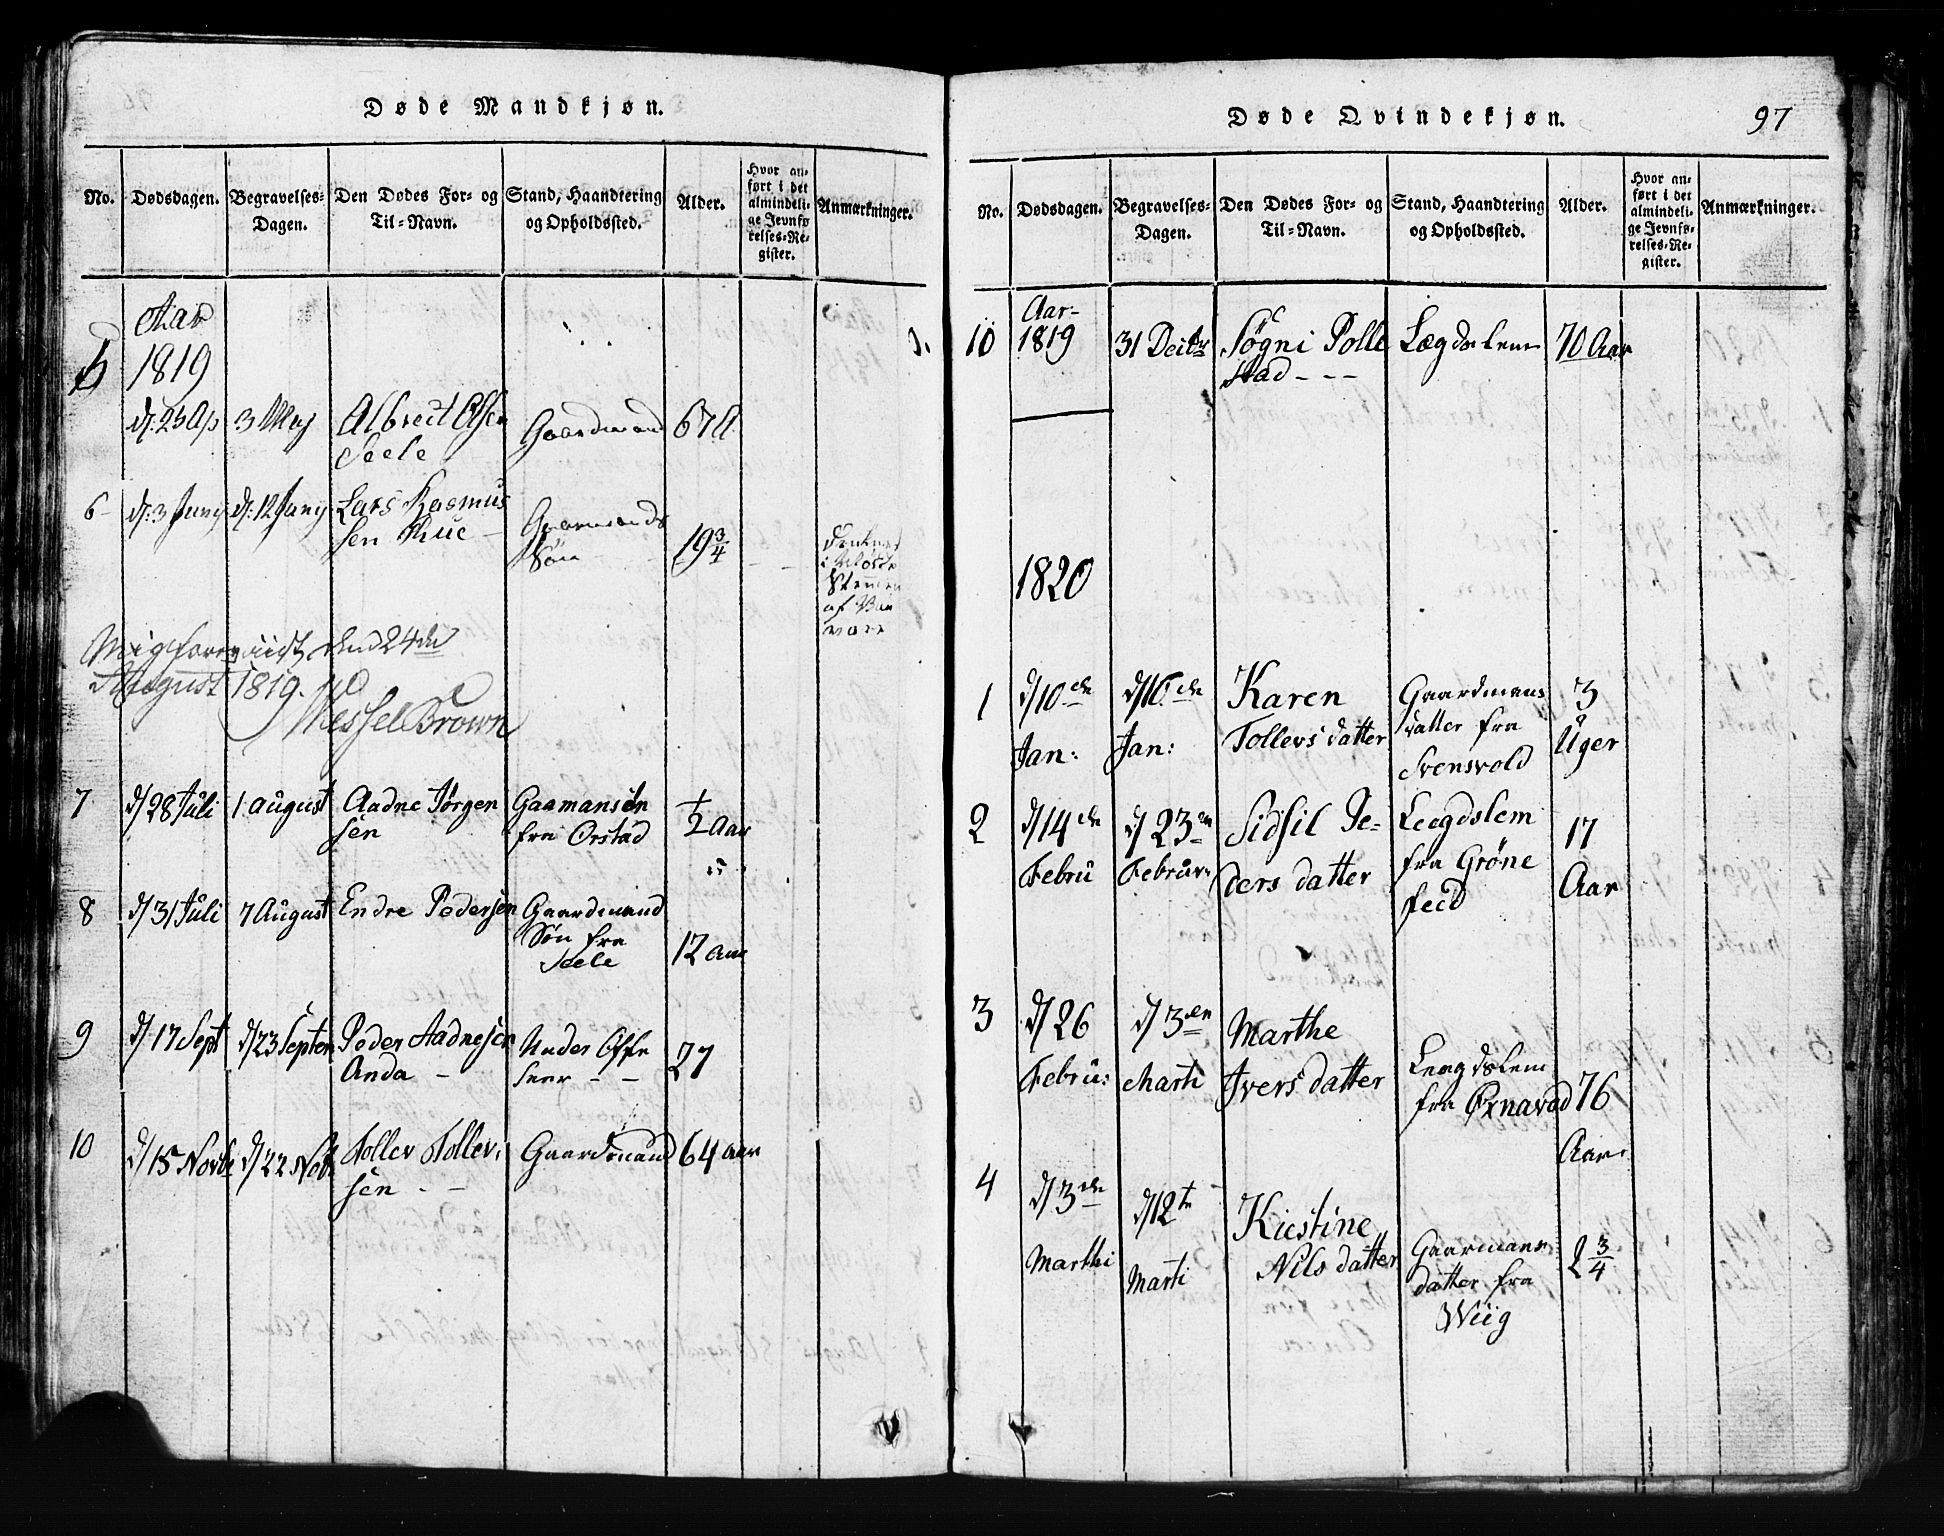 Døde Mandkjøn.
No. Dødsdagen. Begravelses-Dagen. Den Dødes For- og Til-Navn. Stand, Haandtering og Opholdssted. Alder. Hvor anført i det almindelige Jevnførelses-Register. Anmærkninger.
Aar
1819
5 d: 25 Ap 3 Maj Albrect Olsen Gaardmand 67 A.
Seele
6 d: 3 Juny d: 12 Juny Lars Rasmus
sen Rue Søn 19 3/4
af
Mig foreviist, dend 24de
August 1819.
Wessel Brown
7 d/ 28 Juli 1 august Aadne Jørgen Gaamansøn 1/2 Aar
sen fra Orstad
8 d/ 31 Juli 7 August Endre Pedersen Gaardmand
Søn fra 12 aar
Seele
9 d/ 17 Sept d/ 23 Septem Peder Aadnesen Under Offi 27
Anda ceer
10 d/ 15 Novbe d/ 22 Nov Toller Toller Gaardmand 64 aar
sen
Døde Qvindekjøn. 97
No. Dødsdagen. Begravelses-Dagen. Den Dødes For- og Til-Navn. Stand, Haandtering og Opholdssted. Alder. Hvor anført i det almindelige Jevnførelses-Register. Anmærkninger.
Aar
10 1819 31 Decbr Søgni Polle Lægdslem 70 Aar
stad
1820
1 d/ 10de d/ 16de Karen Gaardmans 3
Jan: Jan: Tollers datter datter fra Uger
Svensvold
2 d/ 14de d/ 23de Sidsil Pe- Leegdslem 17
Febru Februar ders datter fra Grøne Aar
feed
3 d/ 26 d/ 3den Marthe
Febru: Marti Ivers datter Leegdslem 76
fra Aar
4 d/ 3de d/ 12te Kiestine
Marthi Marti Nils datter Gaarmans 2 3/4
datter fra
Wiig